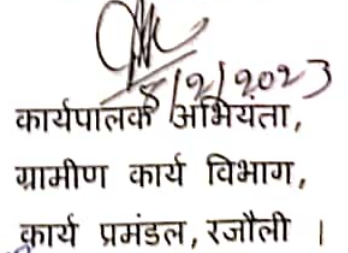 8/2/2023
कार्यपालक अभियंता,
ग्रामीण कार्य विभाग,
कार्य प्रमंडल, रजौली ।